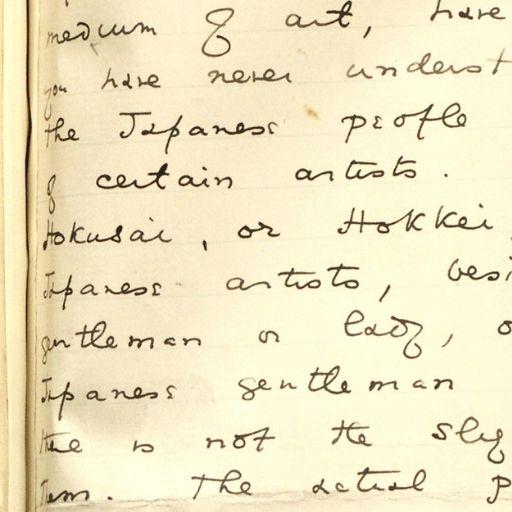 medium of art, have
you have never underst
the Japanese people
of certain artists.
Hokusai, or Hokkei,
Japanese artists, besi
gentleman or lady, o
Japanese gentleman
there is not the slig
them. The actual p